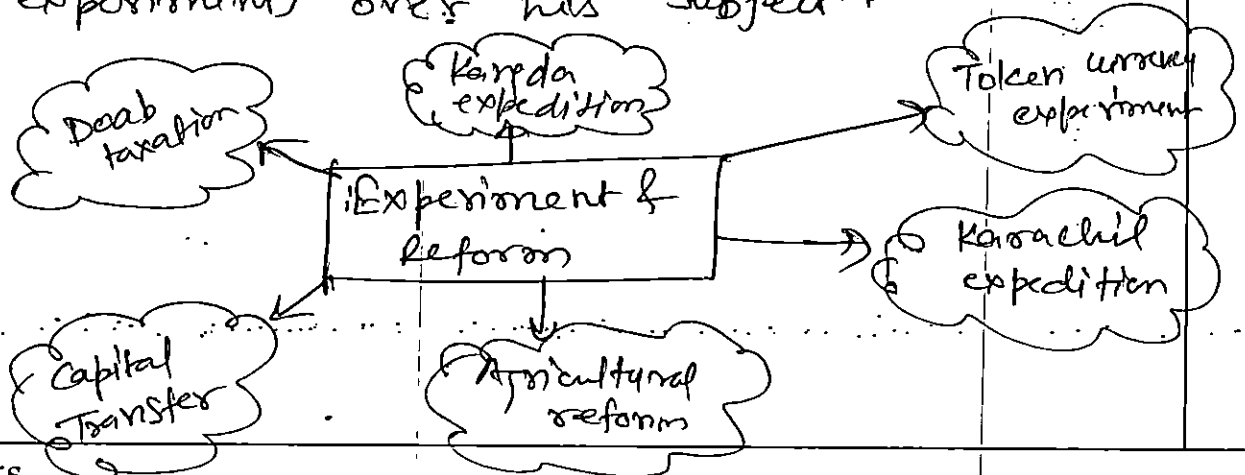 experiments over his subject.
Kareda
expedition
Token currency
experiment
Doab
taxation
Experiment &
Reform
Karachil
expedition
Capital
Transfer
Agricultural
reform